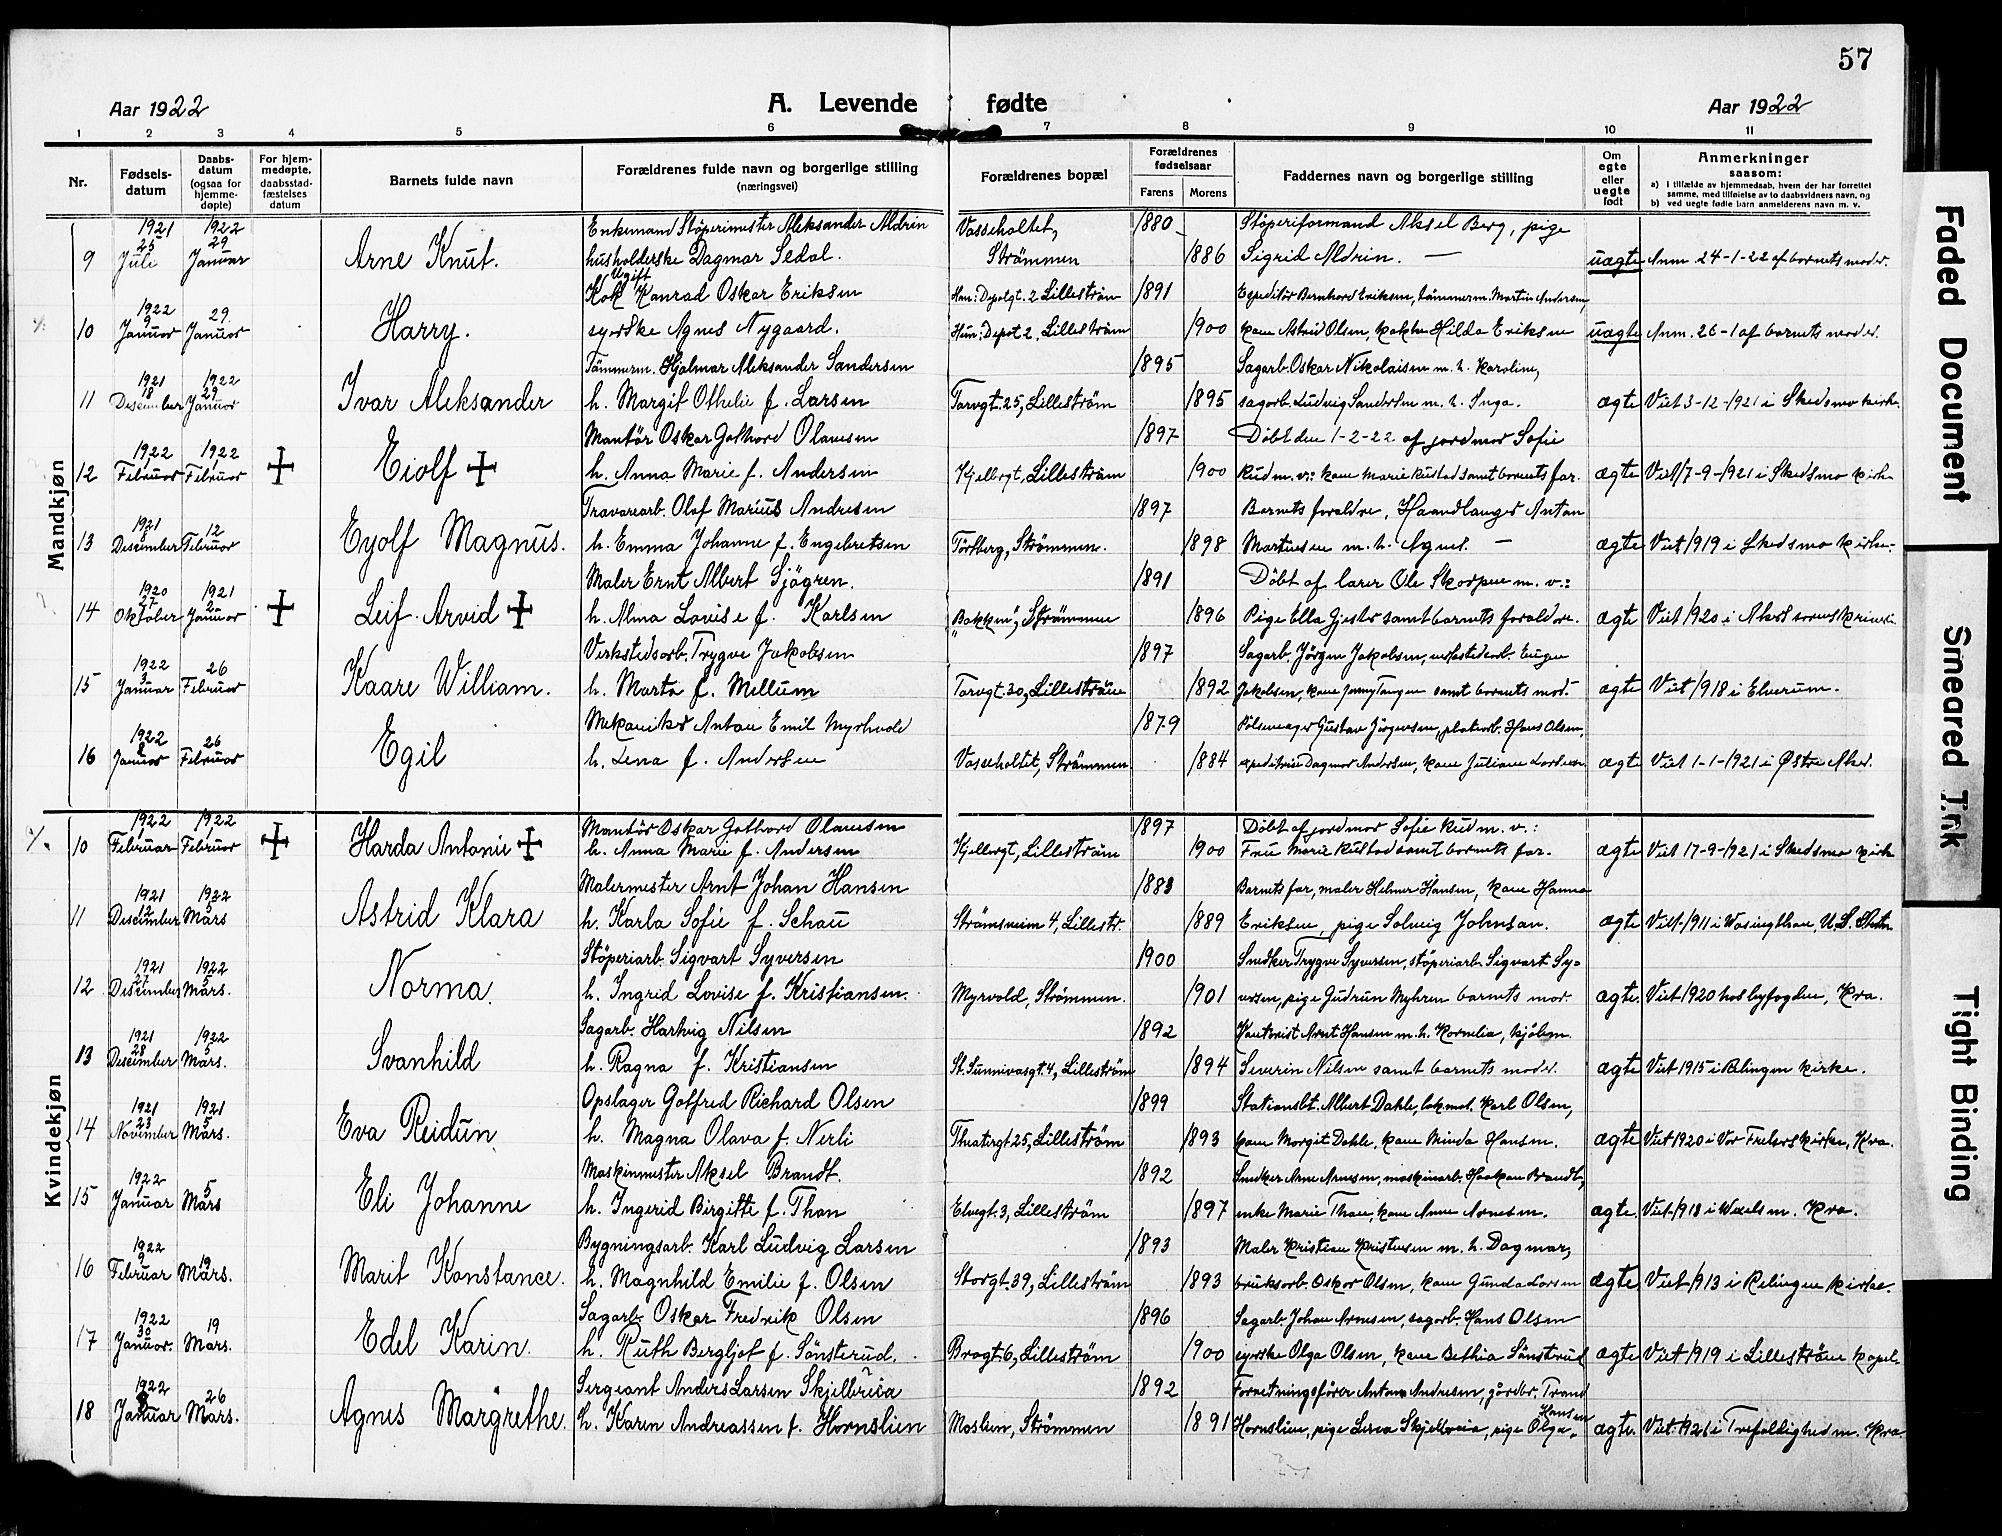 57
Aar 1922 A. Levende fødte Aar 1922
1 2 3 4 5 6 7 8 9 10 11
Nr. Fødsels-datum Daabs-datum (ogsaa for hjemme-døpte) For hjem-medøpte, daabsstad-fæstelses datum Barnets fulde navn Forældrenes fulde navn og borgerlige stilling (næringsvei) Forældrenes bopæl Forældrenes fødselsaar Farens Morens Faddernes navn og borgerlige stilling Om egte eller uegte født Anmerkninger saasom: a) i tilfælde av hjemmedaab, hvem der har forrettet samme, med tilføielse av to daabsvidners navn, og b) ved uegte fødte barn anmelderens navn m. v.
Mandkjøn
1921 1922 Enkemand Støperimester Aleksander Aldrin Vasseholtet, 1880 Støperiformand Aksel Berg, pige
9 25 Juli 29 Januar Arne Knut. husholderske Dagmar Sedal. Strømmen 1886 Sigrid Aldrin. uægte Anm. 24-1-22 af barnets moder.
1922 Ugift Kok Konrad Oskar Eriksen Han: Depotgt. 2 Lillestrøm 1891 Expeditør Bernhard Eriksen, tømmerm. Martin Andersen,
10 9 Januar 29. Januar Harry. syerske Agnes Nygaard. Hun: Depot 2, Lillestrøm 1900 kone Astrid Olsen, kokke Hilda Eriksen uægte Anm. 26-1 af barnets moder.
1921 1922 Tømmerm. Hjalmar Aleksander Sandersen 1895 Sagarb. Oskar Nikolaisen m. h. Karoline,
11 18 Desember 29 Januar Ivar Aleksander h. Margit Othelie f. Larsen Torvgt. 25, Lillestrøm 1895 sagarb. Ludvig Sandersen m. h. Inga. ægte Viet 3-12-1921 i Skedsmo kirke.
1922 1922 Montør Oskar Gothard Olausen 1897 Døbt den 1-2-22 af jordmor Sofie
12 1 Februar 1 Februar + Eiolf + h. Anna Marie f. Andersen Kjellergt, Lillestrøm 1900 Rud m. v.: kone Marie Rustad samt barnets far. ægte Viet 17-9-1921 i Skedsmo kirke
1921 Travarearb. Olaf Marius Andresen 1897 Barnets foraldre, Haandlanger Antan
13 8 Desember 12 Februar Eyolf Magnus. h. Emma Johanne f. Engebretsen Torsberg, Strømmen. 1898 Martinsen m. h. Agnes. ægte Viet 1919 i Skedsmo kirke.
1920 1921 Maler Ernt Albert Sjøgren. 1891 Døbt af lærer Ole Skorpen m. v.:
14 27 Oktober 2 Januar + Leif Arvid + h. Alma Lovise f. Karlsen "Bakken", Strømmen 1896 Pige Ella Gjester samt barnets foraldre. ægte Viet 1920 i Akers sorenskriveri.
1922 Verkstedsarb. Trygve Jakobsen 1897 Sagarb. Jørgen Jakobsen, verkstedarb. Eugen
15 3 Januar 26 Februar Kaare William. h. Marta f. Mellum Torvgt. 30, Lillestrøm 1892 Jakobsen, kone Jenny Tangen samt barnets mod. ægte Viet 1918 i Elverum.
1922 Mekaniker Antan Emil Myrhvold 1879 Pølsemager Gustav Jørgensen, platearb. Hans Olsen,
16 8 Januar 26 Februar Egil h. Lena f. Andersen Vasseholtet, Strømmen. 1884 expeditrise Dagmar Andersen, kone Juliane Larsen ægte Viet 1-1-1921 i Østre Aker.
Kvindekjøn
1922 1922 Montør Oskar Gothard Olausen 1897 Døbt af jordmor Sofie Rud m. v.:
10 1 Februar 1 Februar + Harda Antonie + h. Anna Marie f. Andersen Kjellergt, Lillestrøm 1900 Fru Marie Rustad samt barnets far. ægte Viet 17-9-1921 i Skedsmo kirk
1921 1922 Malermester Arnt Johan Hansen 1883 Barnets far, maler Helmer Hansen, kone Hanna
11 12 Desember 5 Mars Astrid Klara h. Karla Sofie f. Schau Strømsveien 4, Lillestr. 1889 Eriksen, pige Solveig Johnsen. ægte Viet 1911 i Wasingthon, U.S.
1921 1922 Støperiarb. Sigvart Syversen 1900 Snedker Trygve Syversen, støperiarb. Sigvart Sy-
12 27 Desember 5 Mars. Norma. h. Ingrid Lovise f. Kristiansen. Myrvold, Strømmen. 1901 versen, pige Gudrun Myhren barnets mor. ægte. Viet 1920 hos byfogden, Kra.
1921 1922 Sagarb. Hartvig Nilsen 1892 Kontorist Arnt Hansen m. h. Kornelia, kjøbm.
13 28 Desember 5 Mars. Svanhild h. Ragna f. Kristiansen St. Sunnivasgt. 4, Lillestrøm 1894 Severin Nilsen samt barnets moder. ægte Viet 1915 i Rælingen kirke.
1921 1921 Opslager Gotfred Richard Olsen 1899 Stationsbt. Albert Dahle, lokmot. Karl Olsen,
14 23 November 5 Mars. Eva Reidun h. Magna Olava f. Nerli Theatergt. 25, Lillestrøm 1893 kone Margit Dahle, kone Minda Hansen. ægte Viet 1920 i Vor Frelsers kirke, Kra.
1922 Maskinmester Aksel Brandt. 1892 Snedker Arne Arnesen, maskinarb. Haakon Brandt,
15 Januar 5 Mars Eli Johanne h. Ingerid Birgitte f. Thon Elvegt. 3, Lillestrøm 1897 enke Marie Thon, kone Anne Arnesen. ægte. Viet 1918 i Wexels m. Kra.
1922 Bygningsarb. Karl Ludvig Larsen 1893 Maler Kristian Kristensen m. h. Dagmar,
16 9 Februar 19 Mars. Marit Konstance. h. Magnhild Emilie f. Olsen Storgt. 39, Lillestrøm 1893 bruksarb. Oskar Olsen, kone Gunda Larsen ægte Viet 1913 i Rælingen kirke.
1922 Sagarb. Oskar Fredrik Olsen 1896 Sagarb. Johan Arnesen, sagarb. Hans Olsen
17 30 Januar. 19 Mars. Edel Karin. h. Ruth Bergljot f. Sønsterud. Brogt. 6, Lillestrøm 1900 syerske Olga Olsen, kone Bethia Sønsterud ægte Viet 1919 i Lillestrøm kapel
1922 Sergeant Anders Larsen Skjelbreia 1892 Forretningsfører Antan Andresen, gårdbr. Trond
18 Januar 26 Mars. Agnes Margrethe. h. Karen Andreassen f. Hornslien Moslien, Strømmen 1891 Hornslien, pige Lerva Skjelbreia, pige Olga Hansen. ægte. Viet 1921 i Trefoldighed m. Kra
Faded Document
Smeared Ink
Tight Binding